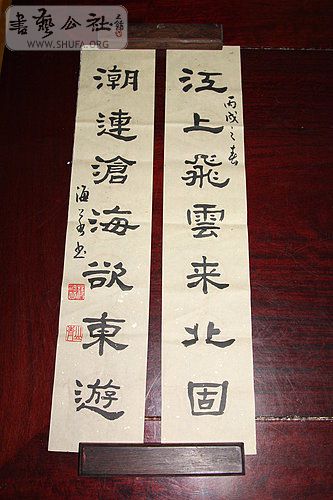 江上飛雲来北固
丙戌之春
潮連滄海欲東遊
書藝公社
WWW.SHUFA.ORG